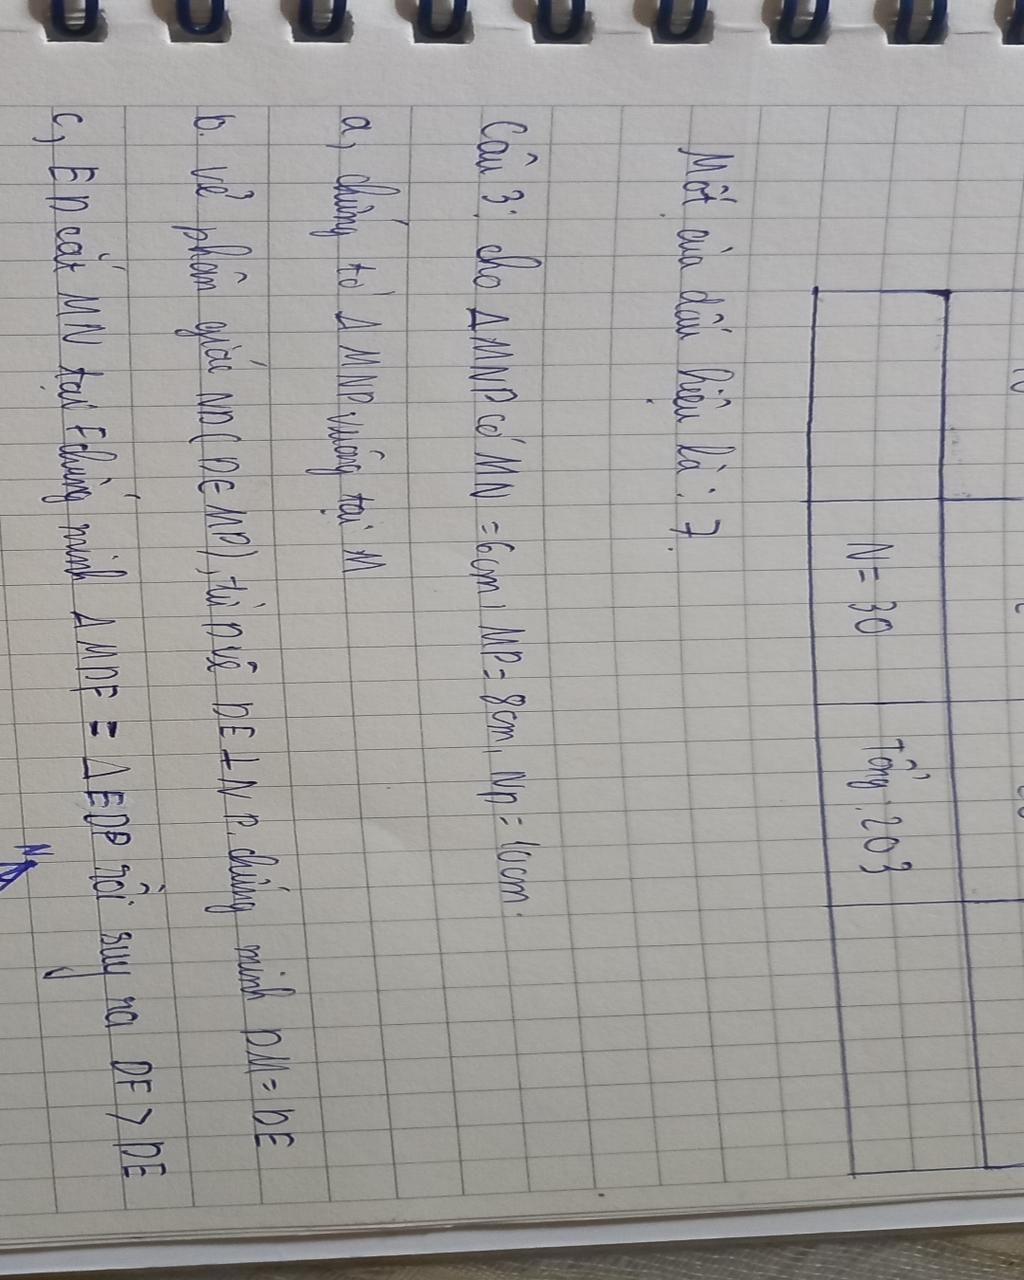 N = 30
Tổng: 203
Mốt của dấu hiệu là: 7.
Câu 3: cho Δ MNP có MN = 6cm, MP = 8cm, NP = 10cm.
a, chứng tỏ Δ MNP vuông tại M
b. vẽ phân giác ND (D ∈ MP), từ D vẽ DE ⊥ NP. chứng minh DM = DE
c, ED cắt MN tại F chứng minh Δ MDF = Δ EDP rồi suy ra DF > DE
N